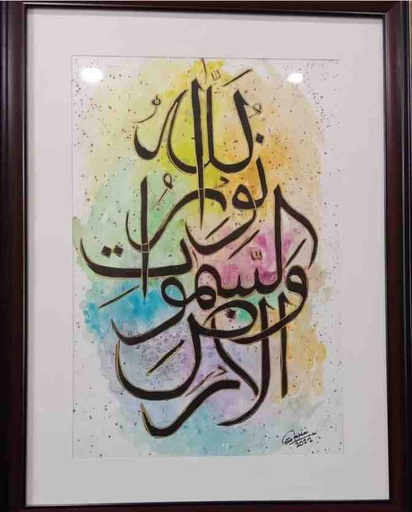 الله
نور
السموت
والارض
2022